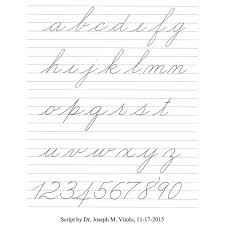 a b c d e f g
h i j k l m n
o p q r s t
u v w x y z
1234567890
Script by Dr. Joseph M. Vitolo, 11-17-2015